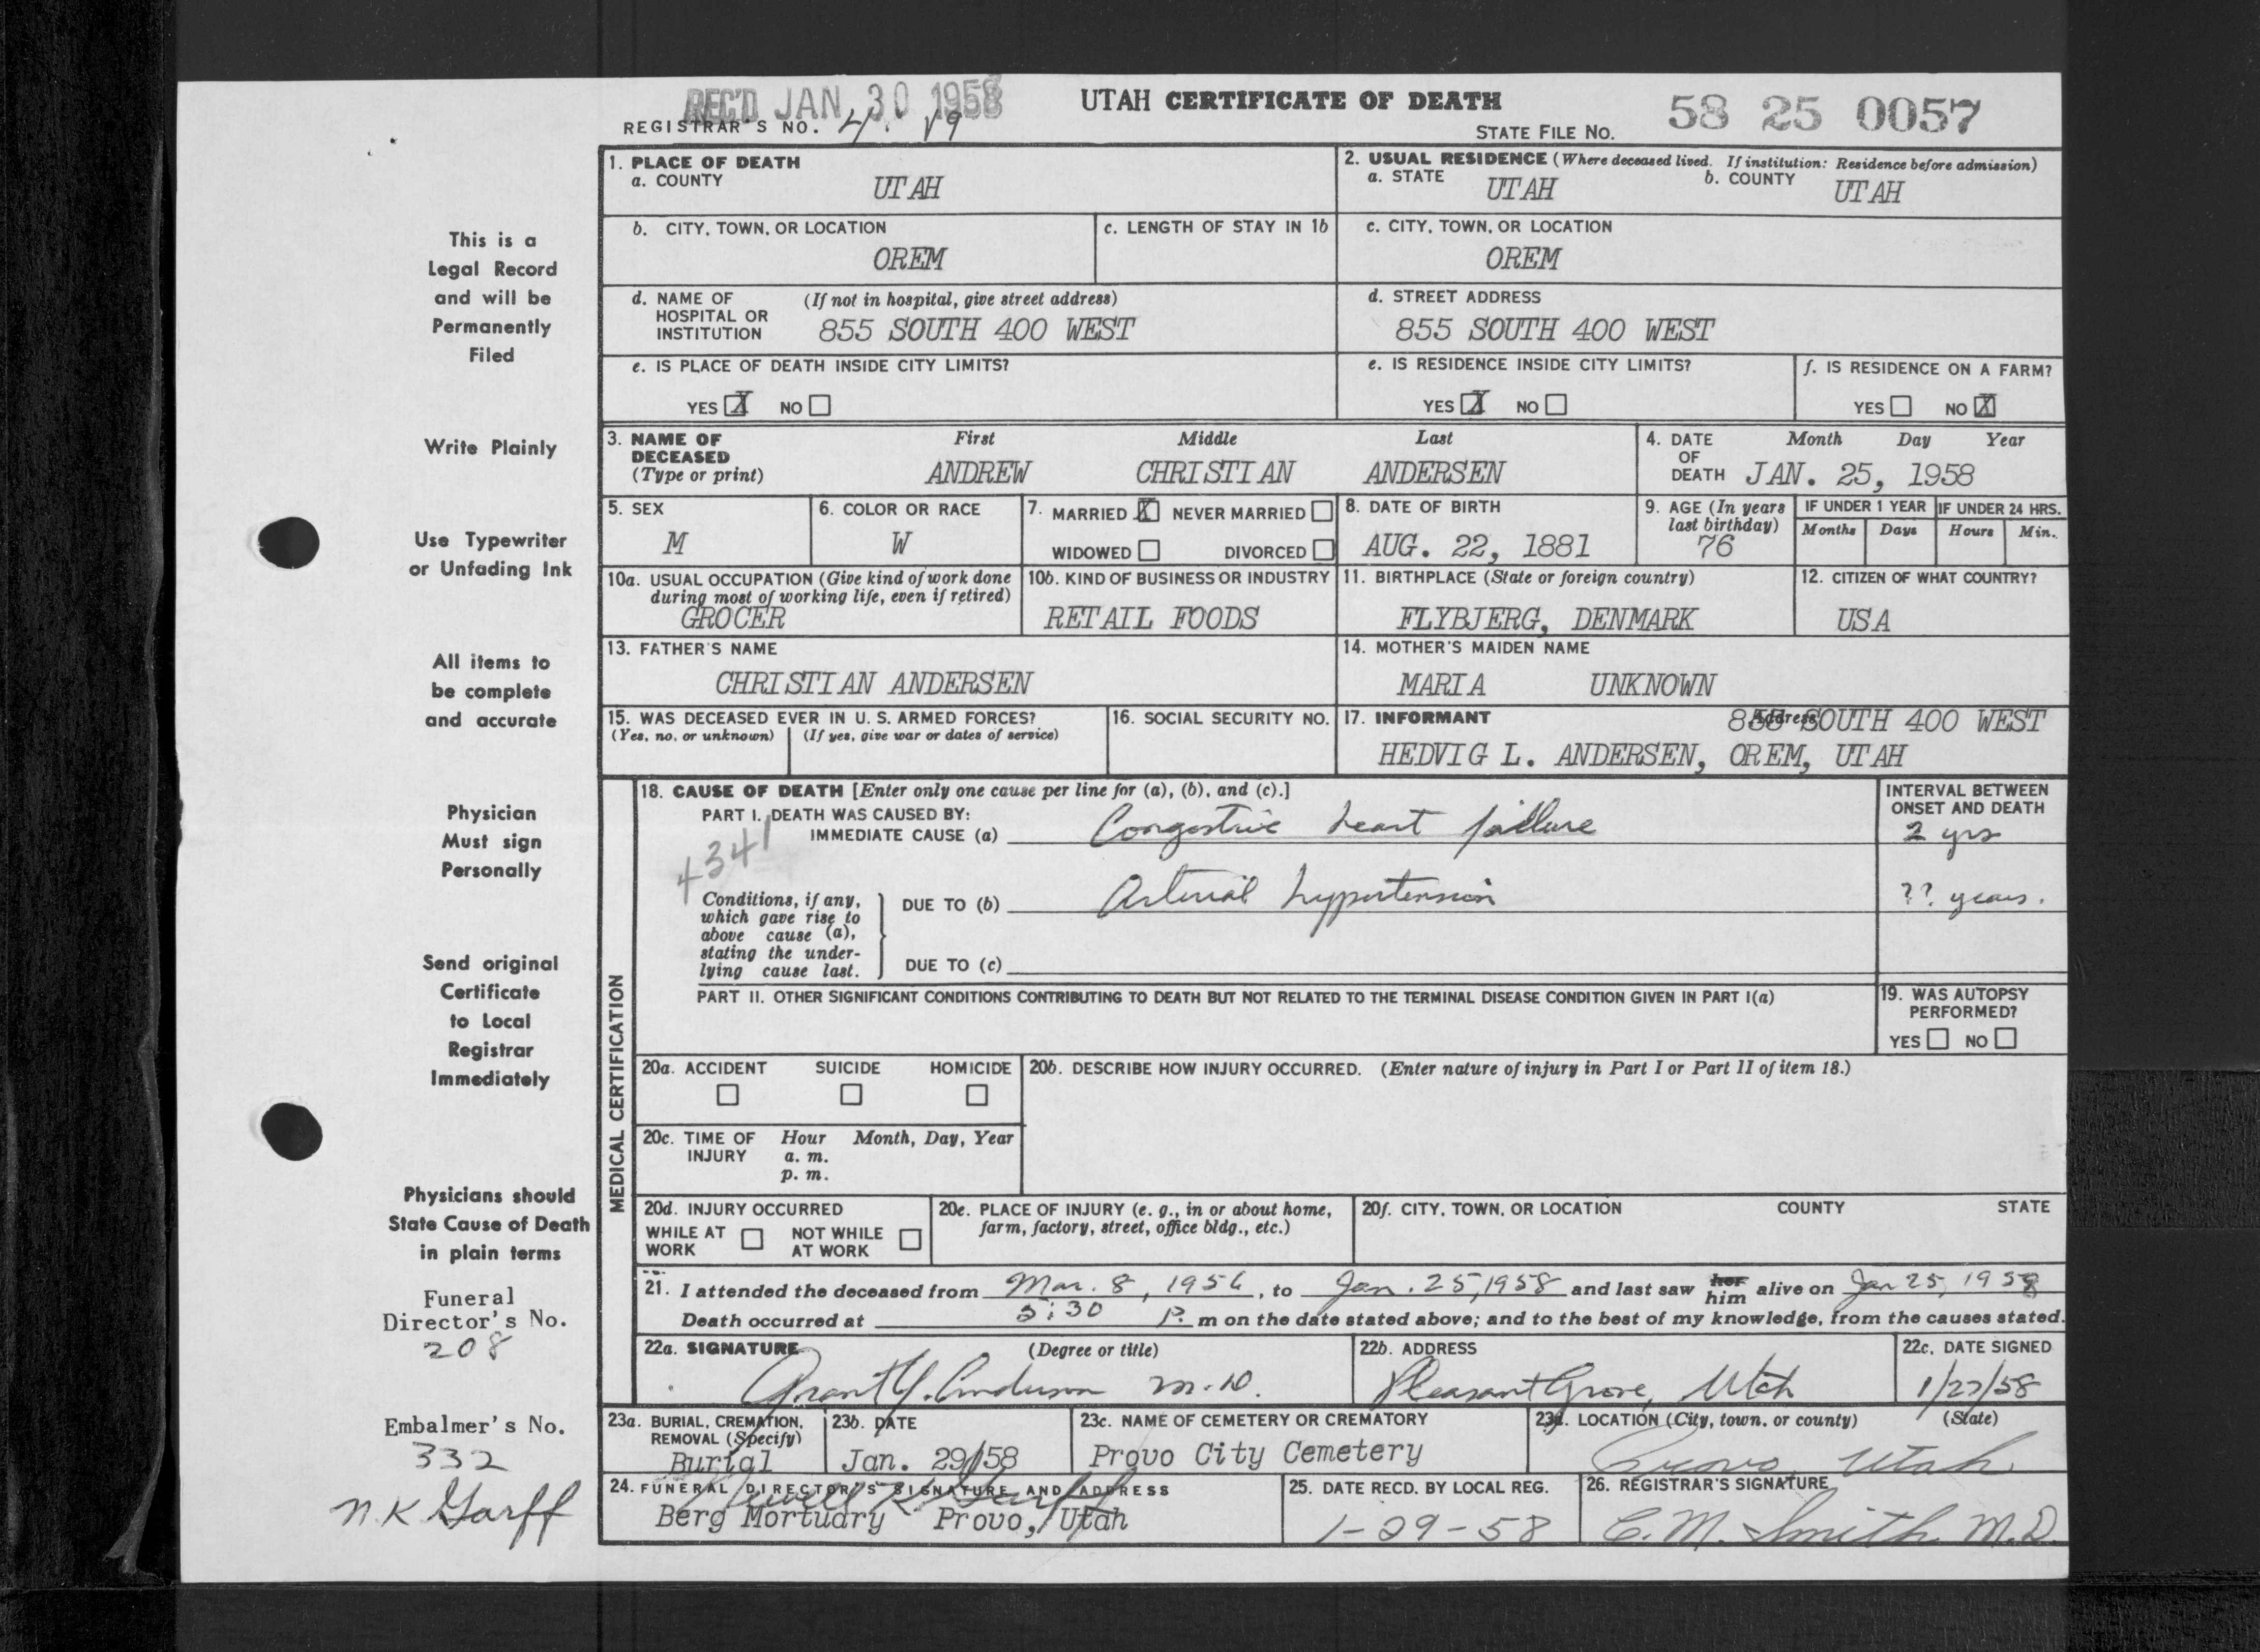 REC'D JAN 30 1958
UTAH CERTIFICATE OF DEATH
58 25 0057
REGISTRAR'S NO. 4 19
STATE FILE NO.
1. PLACE OF DEATH
a. COUNTY
UTAH
2. USUAL RESIDENCE (Where deceased lived. If institution: Residence before admission)
a. STATE UTAH b. COUNTY UTAH
b. CITY, TOWN, OR LOCATION
OREM
c. LENGTH OF STAY IN 1b
c. CITY, TOWN, OR LOCATION
OREM
d. NAME OF HOSPITAL OR INSTITUTION (If not in hospital, give street address)
855 SOUTH 400 WEST
d. STREET ADDRESS
855 SOUTH 400 WEST
e. IS PLACE OF DEATH INSIDE CITY LIMITS?
YES X NO
e. IS RESIDENCE INSIDE CITY LIMITS?
YES X NO
f. IS RESIDENCE ON A FARM?
YES NO X
3. NAME OF DECEASED (Type or print)
First Middle Last
ANDREW CHRISTIAN ANDERSEN
4. DATE OF DEATH
Month Day Year
JAN. 25, 1958
5. SEX
M
6. COLOR OR RACE
W
7. MARRIED X NEVER MARRIED
WIDOWED DIVORCED
8. DATE OF BIRTH
AUG. 22, 1881
9. AGE (In years last birthday)
76
IF UNDER 1 YEAR
Months Days
IF UNDER 24 HRS.
Hours Min.
10a. USUAL OCCUPATION (Give kind of work done during most of working life, even if retired)
GROCER
10b. KIND OF BUSINESS OR INDUSTRY
RETAIL FOODS
11. BIRTHPLACE (State or foreign country)
FLYBJERG, DENMARK
12. CITIZEN OF WHAT COUNTRY?
USA
13. FATHER'S NAME
CHRISTIAN ANDERSEN
14. MOTHER'S MAIDEN NAME
MARIA UNKNOWN
15. WAS DECEASED EVER IN U. S. ARMED FORCES?
(Yes, no, or unknown) (If yes, give war or dates of service)
16. SOCIAL SECURITY NO.
17. INFORMANT Address
855 SOUTH 400 WEST
HEDVIG L. ANDERSEN, OREM, UTAH
MEDICAL CERTIFICATION
18. CAUSE OF DEATH [Enter only one cause per line for (a), (b), and (c).]
PART I. DEATH WAS CAUSED BY:
IMMEDIATE CAUSE (a) Congestive heart failure
4341
Conditions, if any, which gave rise to above cause (a), stating the underlying cause last.
DUE TO (b) Arterial hypertension
DUE TO (c)
INTERVAL BETWEEN ONSET AND DEATH
2 yrs
?? years.
PART II. OTHER SIGNIFICANT CONDITIONS CONTRIBUTING TO DEATH BUT NOT RELATED TO THE TERMINAL DISEASE CONDITION GIVEN IN PART I(a)
19. WAS AUTOPSY PERFORMED?
YES NO
20a. ACCIDENT SUICIDE HOMICIDE
20b. DESCRIBE HOW INJURY OCCURRED. (Enter nature of injury in Part I or Part II of item 18.)
20c. TIME OF INJURY Hour Month, Day, Year
a. m.
p. m.
20d. INJURY OCCURRED
WHILE AT WORK NOT WHILE AT WORK
20e. PLACE OF INJURY (e. g., in or about home, farm, factory, street, office bldg., etc.)
20f. CITY, TOWN, OR LOCATION COUNTY STATE
21. I attended the deceased from Mar. 8, 1956, to Jan. 25, 1958 and last saw her him alive on Jan 25, 1958
Death occurred at 5:30 P. m on the date stated above; and to the best of my knowledge, from the causes stated.
22a. SIGNATURE (Degree or title)
Grant Y. Anderson M.D.
22b. ADDRESS
Pleasant Grove, Utah
22c. DATE SIGNED
1/27/58
23a. BURIAL, CREMATION, REMOVAL (Specify)
Burial
23b. DATE
Jan. 29/58
23c. NAME OF CEMETERY OR CREMATORY
Provo City Cemetery
23d. LOCATION (City, town, or county) (State)
Provo, Utah
24. FUNERAL DIRECTOR'S SIGNATURE AND ADDRESS
Newell K Garff
Berg Mortuary Provo, Utah
25. DATE RECD. BY LOCAL REG.
1-29-58
26. REGISTRAR'S SIGNATURE
C. M. Smith M.D.
This is a
Legal Record
and will be
Permanently
Filed
Write Plainly
Use Typewriter
or Unfading Ink
All items to
be complete
and accurate
Physician
Must sign
Personally
Send original
Certificate
to Local
Registrar
Immediately
Physicians should
State Cause of Death
in plain terms
Funeral
Director's No.
208
Embalmer's No.
332
N K Garff